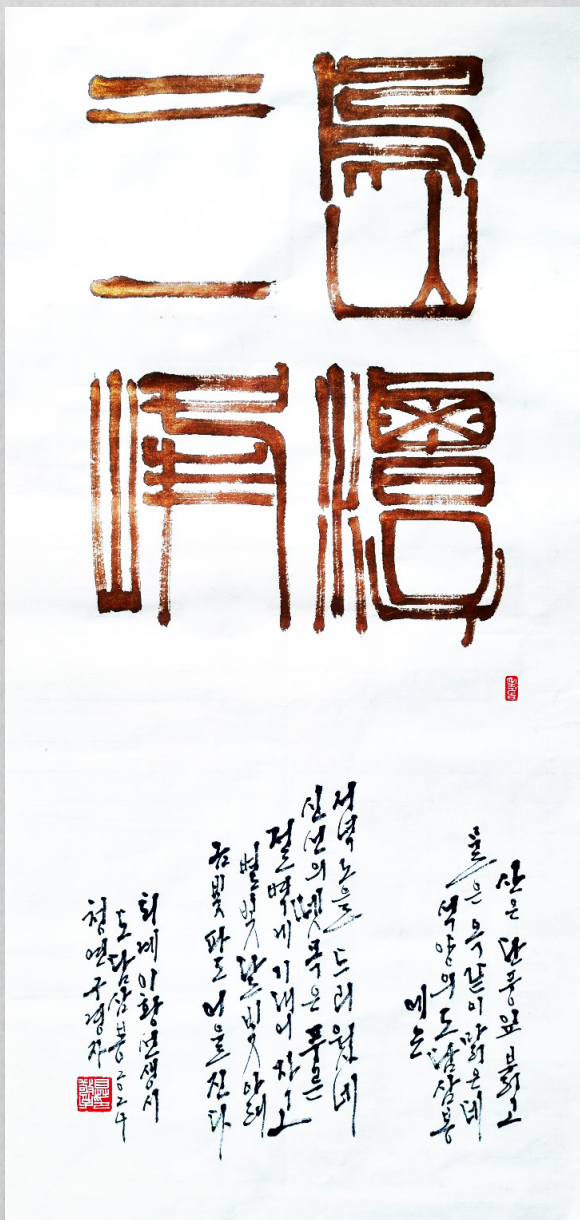 島潭
三峰
산은 단풍잎 붉고
물은 옥같이 맑은데
석양의 도담삼봉
에는
저녁노을 드리웠네
신선의 뗏목은 푸른
절벽에 기대어 자고
별빛 달빛 아래
금빛 파도
퇴계 이황 선생 시
도담삼봉
청연 구경자